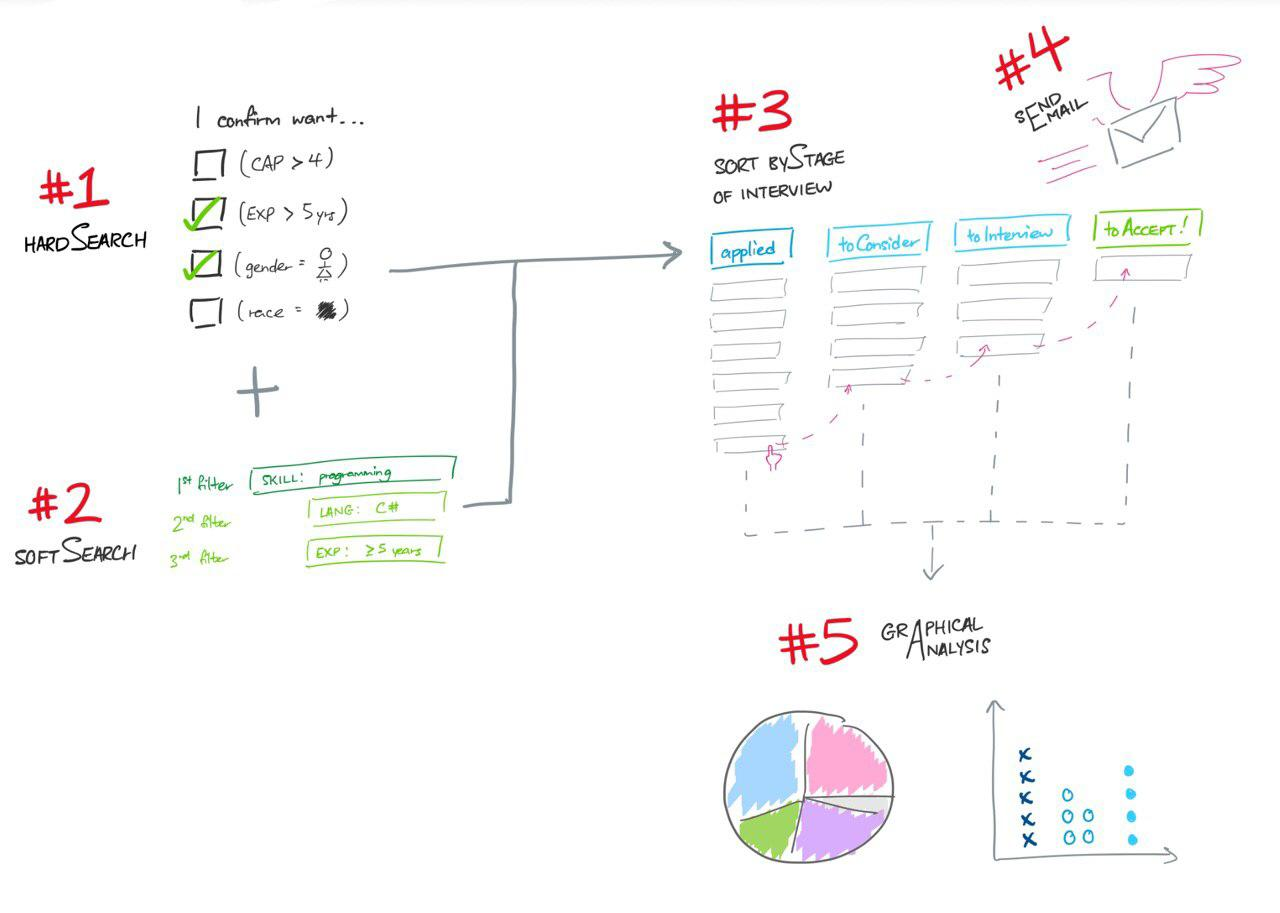 #1
HARD SEARCH
I confirm want...
(CAP > 4)
(EXP > 5 yrs)
(gender = )
(race = )
+
#2
SOFT SEARCH
1st filter
SKILL: programming
2nd filter
LANG: C#
3rd filter
EXP: ≥5 years
#3
SORT BY STAGE
OF INTERVIEW
applied
to Consider
to Interview
to ACCEPT!
#4
SEND
EMAIL
#5
GRAPHICAL
ANALYSIS